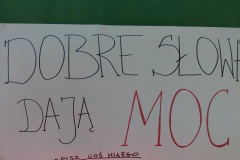 DOBRE SŁOWA
DAJĄ MOC
COŚ MIŁEGO